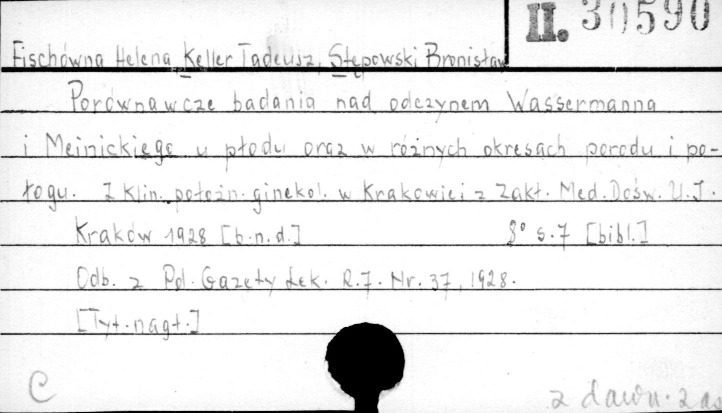 II. 30590
Fischówna Helena, Keller Tadeusz, Stępowski Bronisław
Porównawcze badania nad odczynem Wassermanna
i Meinickiego u płodu oraz w różnych okresach porodu i po-
łogu. Z Klin. położn. ginekol. w Krakowie i z Zakł. Med. Dośw. U.J.
Kraków 1928 [b.n.d.] 8° s.7 [bibl.]
Odb. z Pol. Gazety Lek. R.7. Nr. 37, 1928.
[Tyt. nagł.]
C z dawn. zas